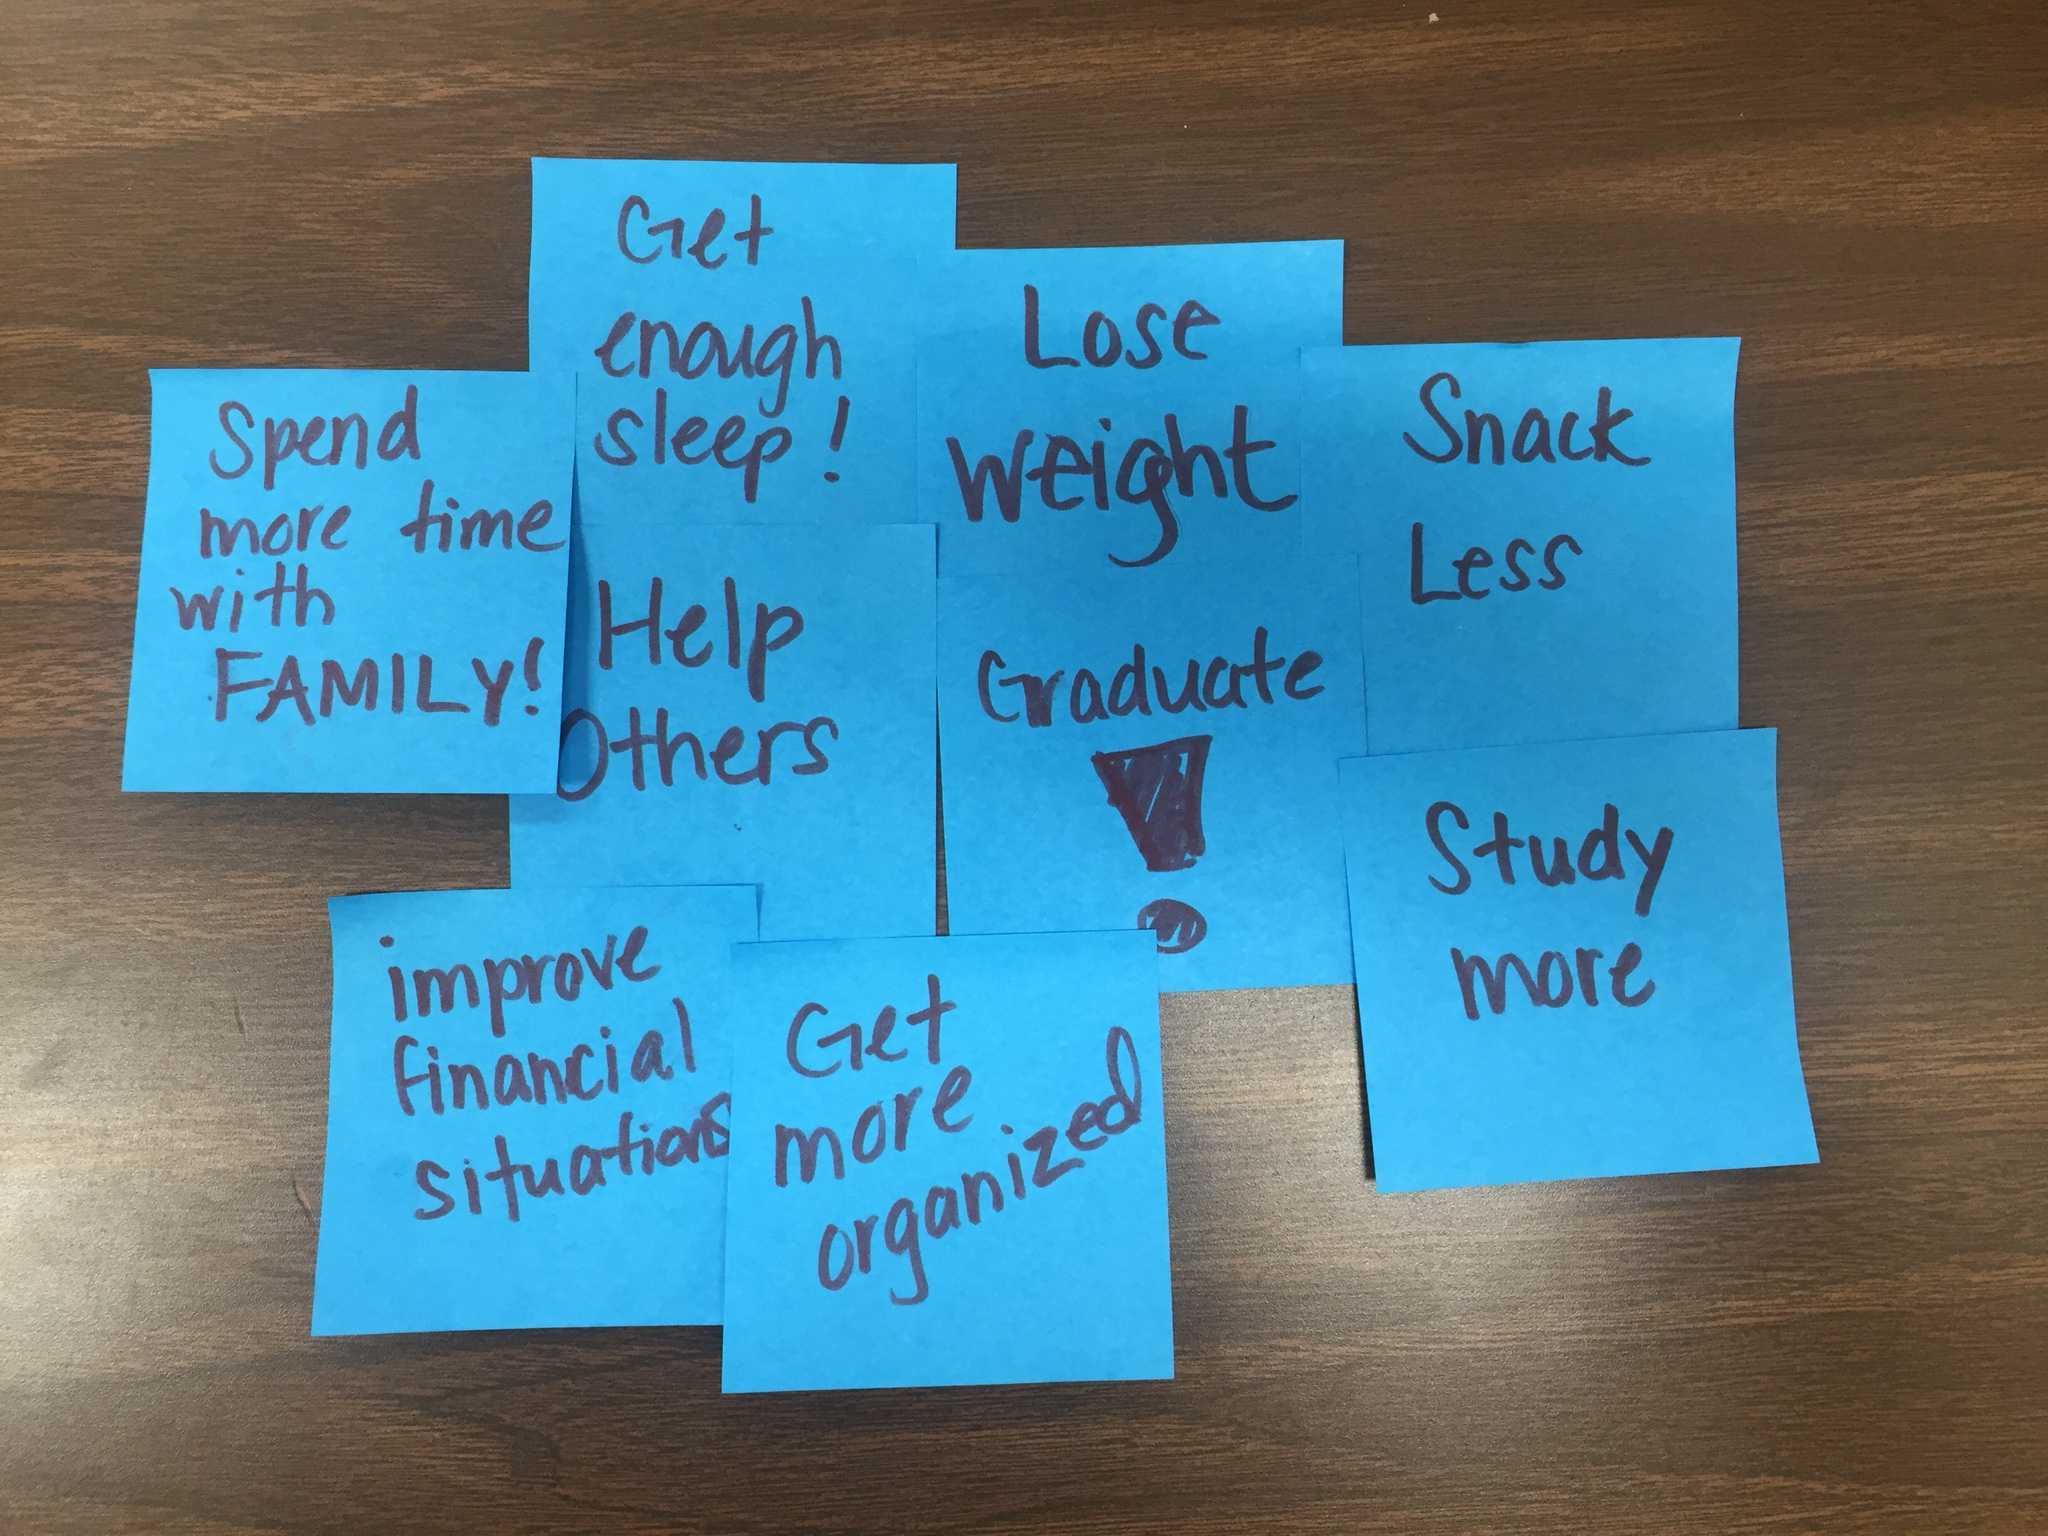 Get
enough
sleep!
Lose
Weight
Snack
Less
Spend
more time
with
FAMILY!
Help
Others
Graduate
!
Study
more
improve
financial
situations
Get
more
organized